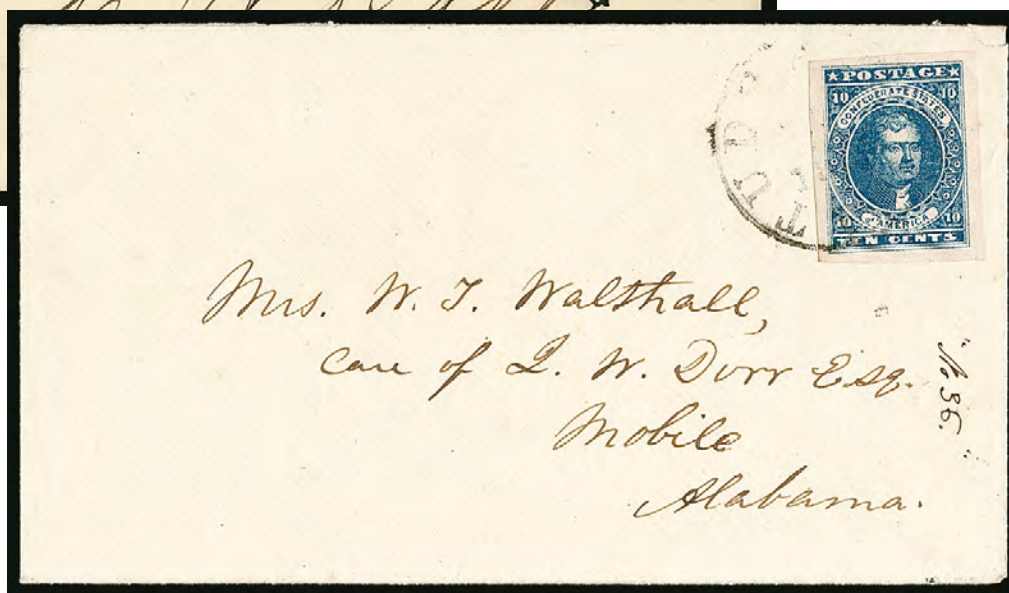 TUD
★POSTAGE★
10 10
CONFEDERATE STATES
OF AMERICA
10 10
TEN CENTS
Mrs. W. T. Walthall,
Care of L. W. Dorr Esq.
Mobile
Alabama.
"No 36."